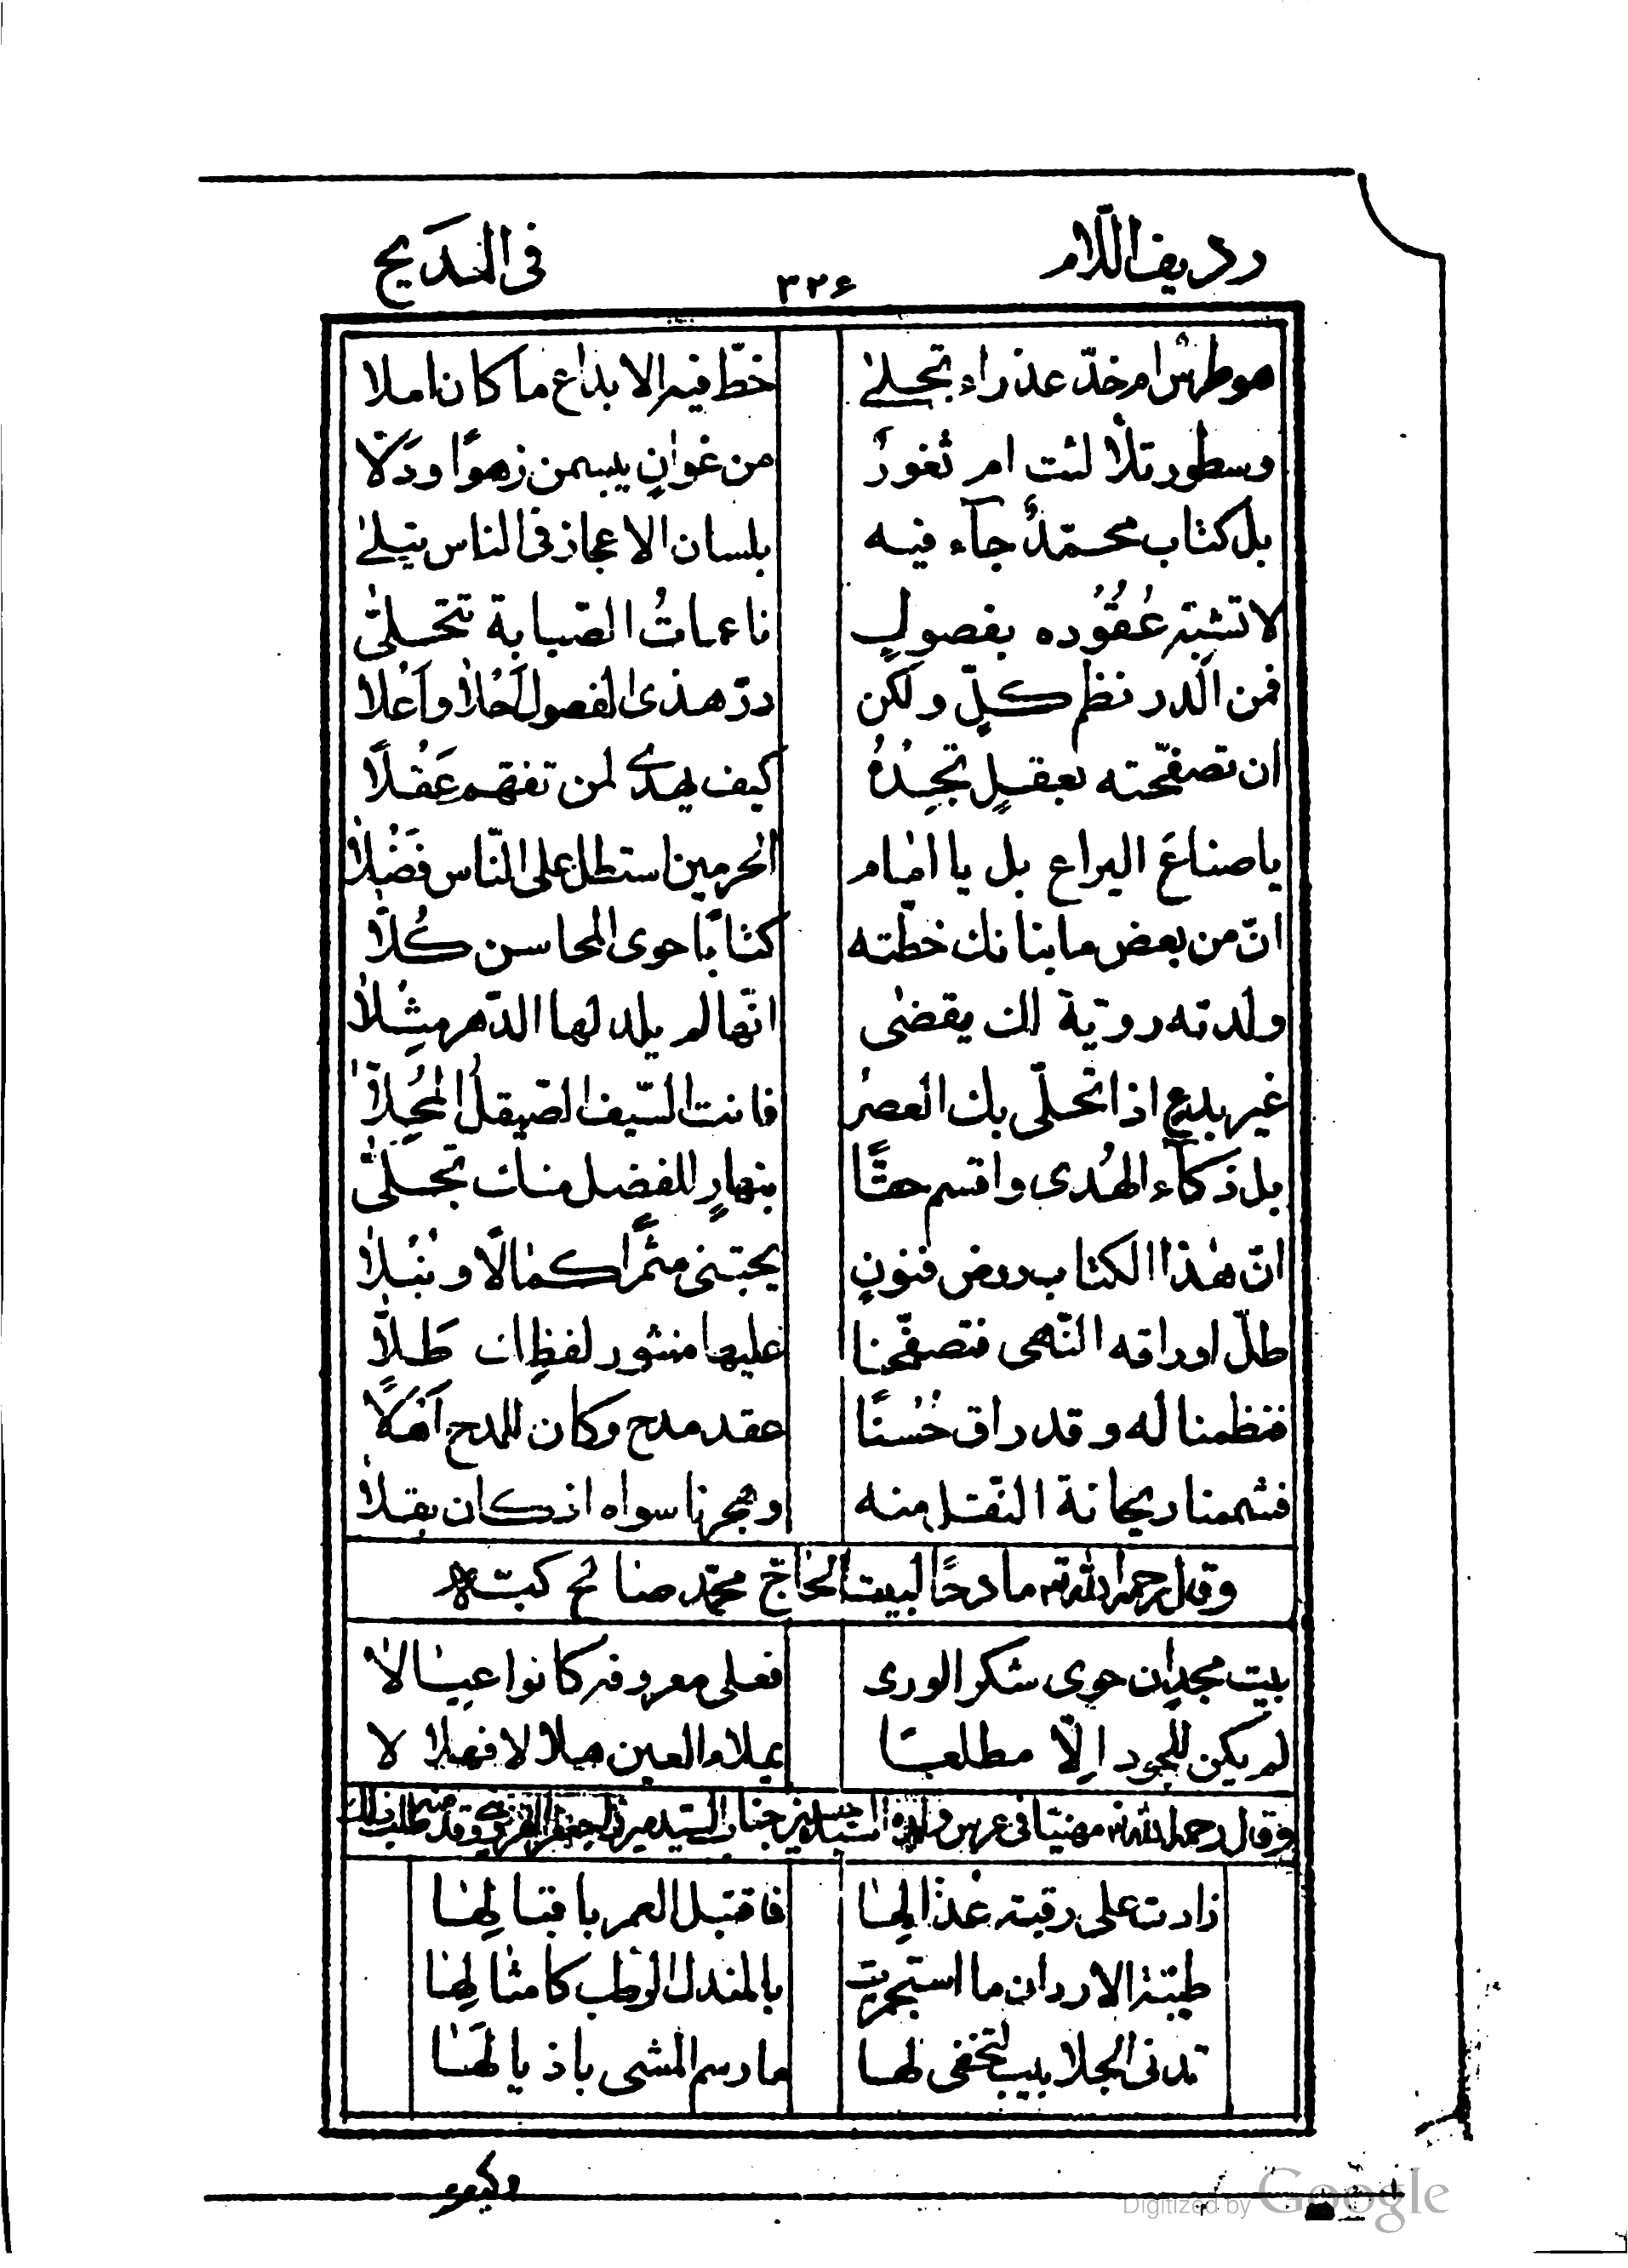 رديف اللّام ٣٢۶ فى المديح
هو طرس ام خدّ عذراء تجلىٰ خطّ فيه الابداع ما كان املا
وسطور تلألئت ام ثغورٌ من غوانٍ يبسمن زهوًا ودَلّا
بل كتاب محمّدٌ جآء فيه بلسان الاعجاز فى الناس يتلىٰ
لا تشبّه عُقُوده بفصولٍ ناعماتُ الصّبابة تتحلّىٰ
فمن الدر نظم كلّ ولكن درّ هذى الفصول اَحْلا واَعْلا
ان تصفّحته بعقلٍ تجِدْهُ كيف يهدى لمن تفهّم عَقْلًا
يا صناعَ اليراع بل يا امام الحرمين استطل على النّاس فَضْلا
انّ من بعض ما بنانك خطّته كتابًا حوى المحاسن كُلّا
ولدته رويّة لك يقضى انّها لم يلد لها الدّهر مِثْلا
غير بدعٍ اذا تحلّى بك العصرُ فانت السّيف الصّيقلُ المُحِلّا
بل ذكآء الهُدى واقسم حقًّا بنهارٍ للفضل منك تجلّىٰ
انّ هٰذا الكتاب روض فنونٍ يجتنى مثمرًا كمالًا ونُبْلا
طلّ اوراقه النّهى فتصفّحنا عليها منثور لفظِك طَلّا
فنظمنا له وقد راق حُسْنًا عقد مدح وكان للمدح اَهْلًا
فشممنا ريحانة النّقل منه وهجرنا سواه اذ كان بقلا
وقال رحمه الله تع مادحًا لبيت الحاج محمّد صالح كبّه
بيت مجدٍ ان حوى شكر الورى فعلى معروفه كانوا عيالا
لم يكن للجود الّا مطلعًا يملاء العين هلالا فهلالا
وقال رحمه الله تع مهنيّا فى عرس ولده السيد حسين جناب السيد ميرزا جعفر القزوينى وقد طلب منه ذلك
زادت على رقبة عذّالها فاقتبل العمر باقبالها
طيّبة الاردان ما استجمرت بالمندل الرطب كامثالها
تدنى الجلابيب لتخفى لها ما رسم المشى باذيالها